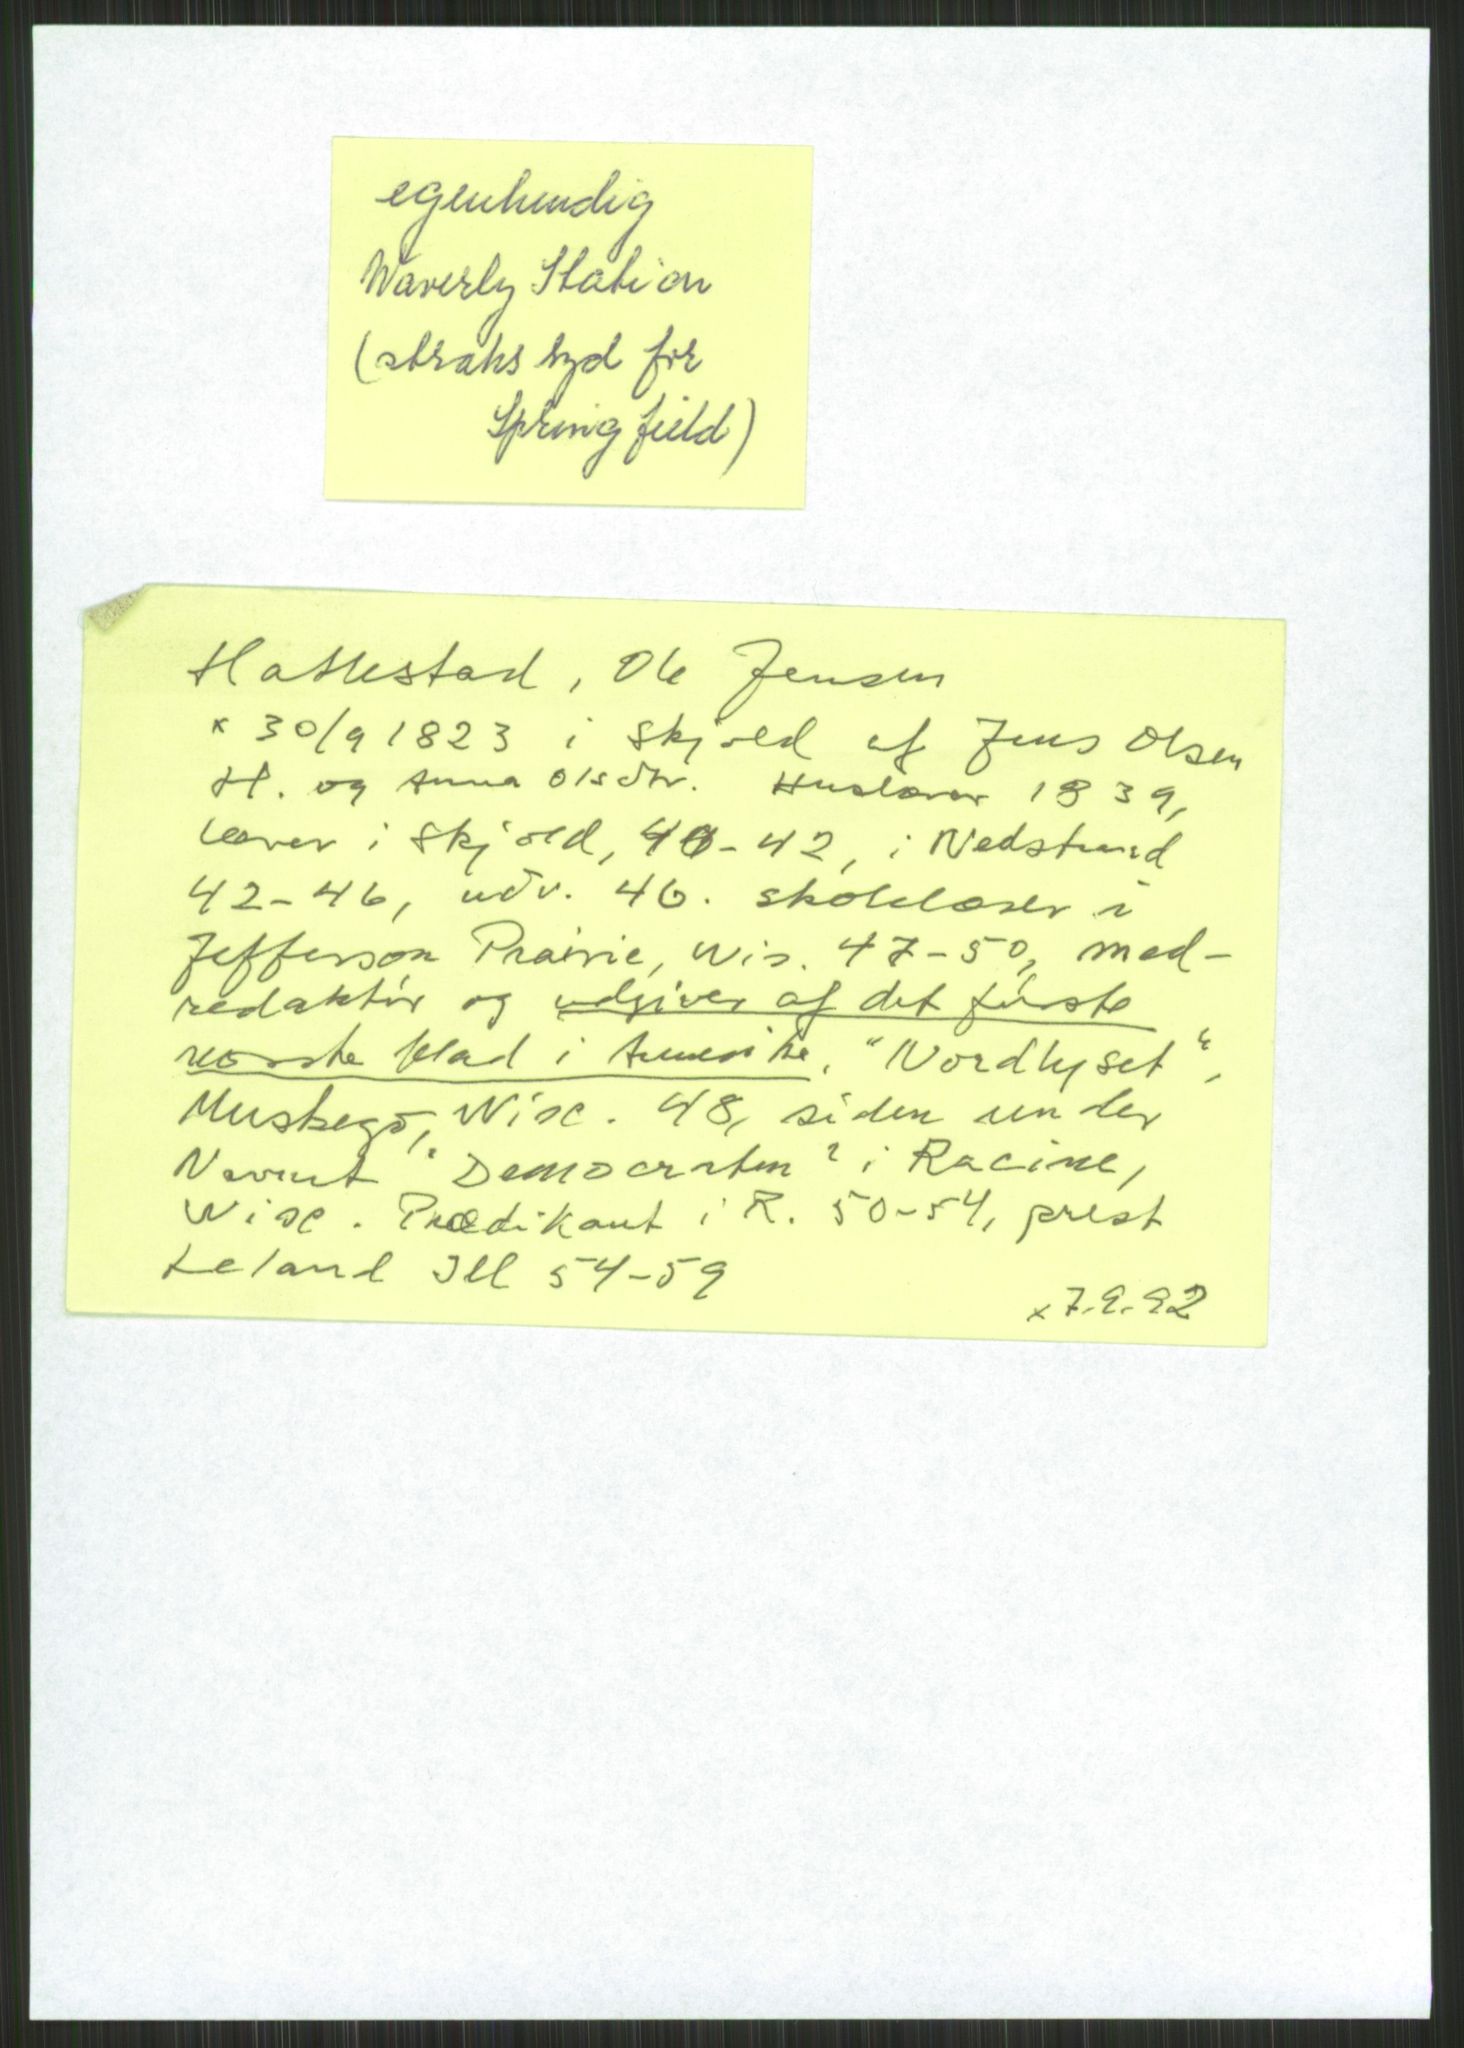 egenhendig
Waverly Station
(straks syd for
Springfield)
Hatlestad, Ole Jensen
x 30/9 1823 i Skjold af Jens Olsen
H. og Anna Olsdtr. Huslærer 1839,
lærer i Skjold, 40-42, i Nedstrand
42-46, udv. 46. skolelærer i
Jefferson Prairie, Wis. 47-50, med-
redaktør og udgiver af det første
norske blad i Amerika, "Nordlyset",
Muskego, Wisc. 48, siden under
Navnet "Democraten" i Racine,
Wisc. Prædikant i R. 50-54, prest
Leland Ill 54-59
x 7.9.92